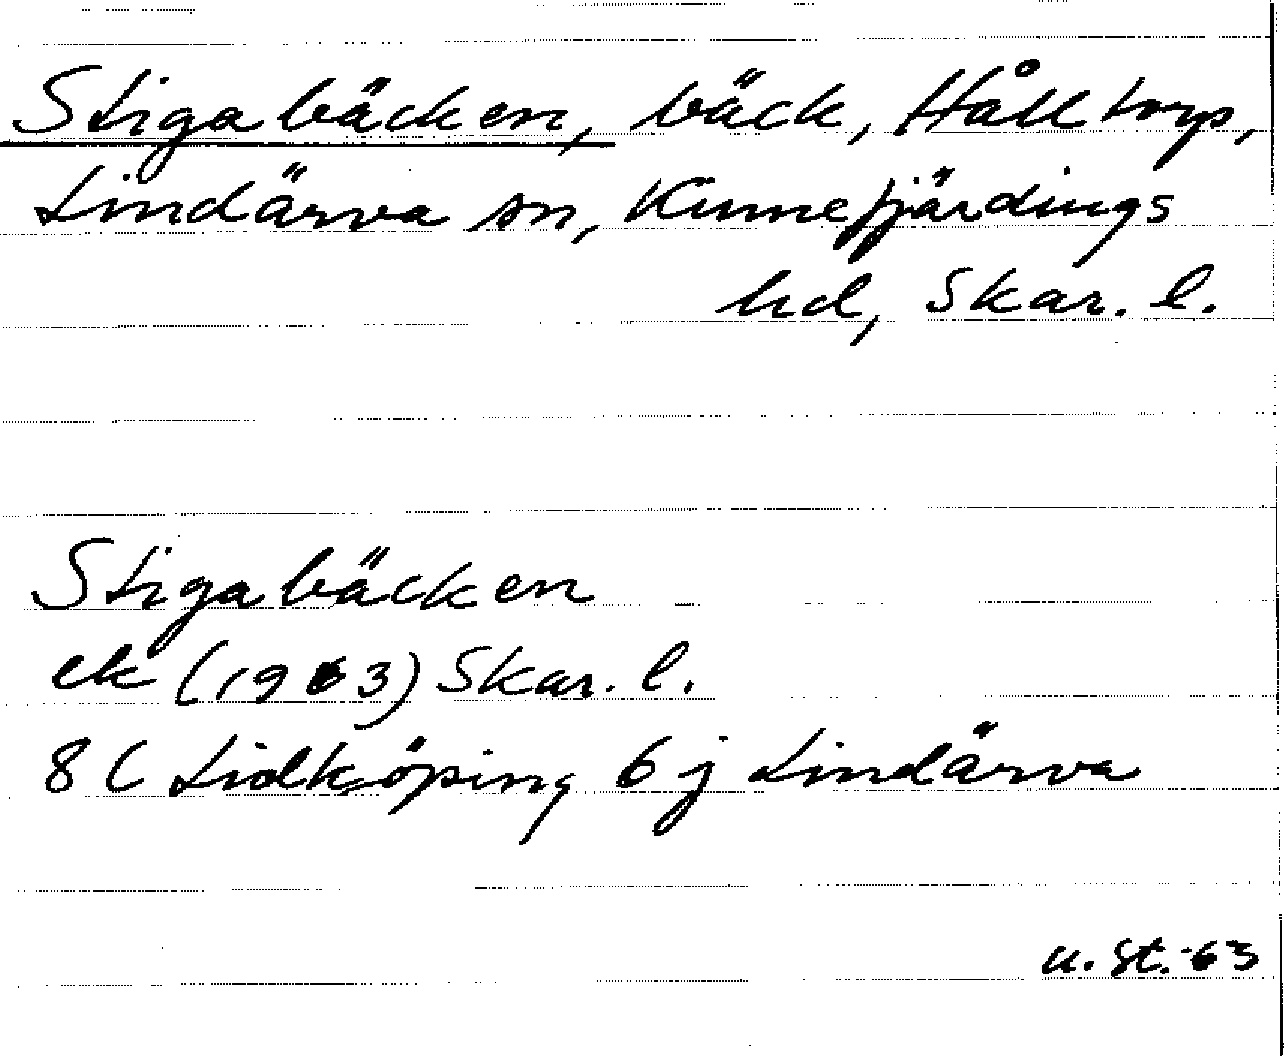 Stigabäcken, bäck, Hålltorp,
Lindärva sn, Kinnefjärdings
hd, Skar. l.
Stigabäcken
ek (1963) Skar. l.
8 C Lidköping 6 j Lindärva
u. St. -63